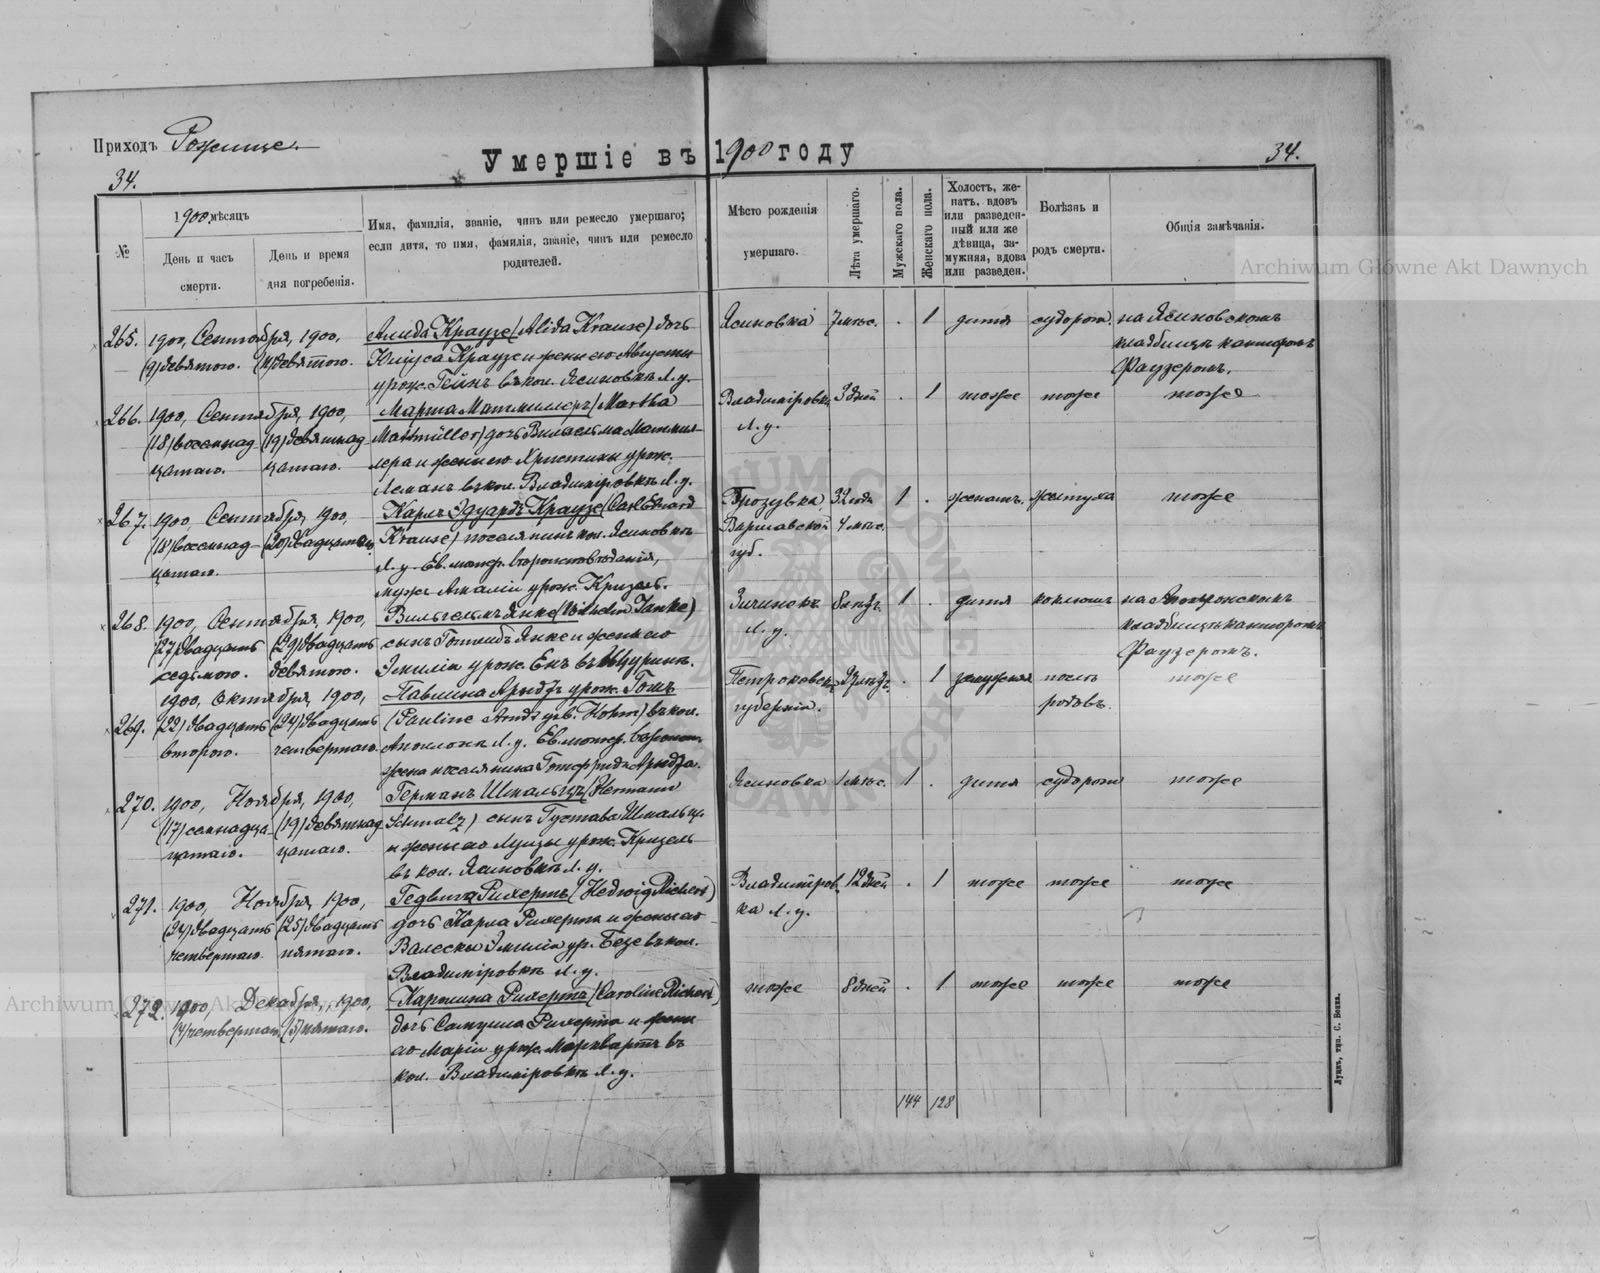 Приходъ Рожище.
Умершіе въ 1900 году
34.
34.
№
1900 мѣсяцъ
День и часъ смерти.
День и время дня погребенія.
Имя, фамилія, званіе, чинъ или ремесло умершаго;
если дитя, то имя, фамилія, званіе, чинъ или ремесло
родителей.
Мѣсто рожденія
умершаго.
Лѣта умершаго.
Мужскаго пола.
Женскаго пола.
Холостъ, же-
натъ, вдовъ
или разведен-
ный или же
дѣвица, за-
мужняя, вдова
или разведен.
Болѣзнь и
родъ смерти.
Общія замѣчанія.
265. 1900, Сентября, 1900, Алида Краузе (Alida Krause) дочь Ясиновка 7 мѣс. . 1 дитя судорог. на Ясиновскомъ
(9) девятого. девятого. Юліуса Краузе и жены его Августы кладбищѣ канторомъ
урож. Гейнъ въ кол. Ясиновкѣ Л. у. Фаузеромъ.
266. 1900, Сентября, 1900, Марта Матмиллеръ (Martha Владиміровка 3 дней . 1 тоже тоже тоже
(18) восемнад (19) девятнад Matmüller) дочь Вильгельма Матмил- Л. у.
цатаго. цатаго. лера и жены его Христины урож.
Леманъ въ кол. Владиміровкѣ Л. у.
267. 1900, Сентября, 1900, Карлъ Эдуардъ Краузе (Carl Eduard 32 года 1 . женатъ. желтуха тоже
(18) восемнад (20) двадцатаго Krause) поселянинъ кол. Ясиновкѣ Варшавской 4 мѣс.
цатаго. Л. у. Ев. лютер. вѣроисповѣданія, губ.
мужъ Амаліи урож. Кризель.
268. 1900, Сентября, 1900, Вильгельмъ Янке (Wilhelm Janke) 8 лѣтъ. 1 . дитя коклюшъ на
(27) двадцать (29) двадцать сынъ Готлиба Янке и жены его Л. у. кладбищѣ канторомъ
седьмого. девятого. Эмиліи урож. Енъ въ Щуринѣ. Фаузеромъ.
269. 1900, Октября, 1900, Павлина Арндтъ урож. Гомъ Петроковск. . 1 замужняя послѣ тоже
(22) двадцать (24) двадцать (Pauline Arndt geb. Hohm) въ кол. губерніи. родовъ.
второго. четвертаго. Л. у. Ев. лютер. вѣроисп.
жена поселянина Готфрида Арндта.
270. 1900, Ноября, 1900, Германъ Шмальцъ (Hermann Ясиновка 1 мѣс. 1 . дитя судороги тоже
(17) семнадца (19) девятнад Schmalz) сынъ Густава Шмальца
цатаго. цатаго. и жены его Луизы урож. Кризель
въ кол. Ясиновкѣ Л. у.
271. 1900, Ноября, 1900, Гедвигъ Рихертъ (Hedwig Richert) Владиміров- 12 дней . 1 тоже тоже тоже
(24) двадцать (25) двадцать дочь Карла Рихерта и жены его ка Л. у.
четвертаго. пятаго. Валески Эмиліи ур. Безе въ кол.
Владиміровкѣ Л. у.
272. 1900, Декабря, 1900, Каролина Рихертъ (Caroline Richert) тоже 8 дней . 1 тоже тоже тоже
(4) четвертаго. (5) пятаго. дочь Самуила Рихерта и жены
его Маріи урож. Марквартъ въ
кол. Владиміровкѣ Л. у.
144 128
Луцкъ, тип. С. Бонка.
Archiwum Główne Akt Dawnych
Archiwum Główne Akt Dawnych